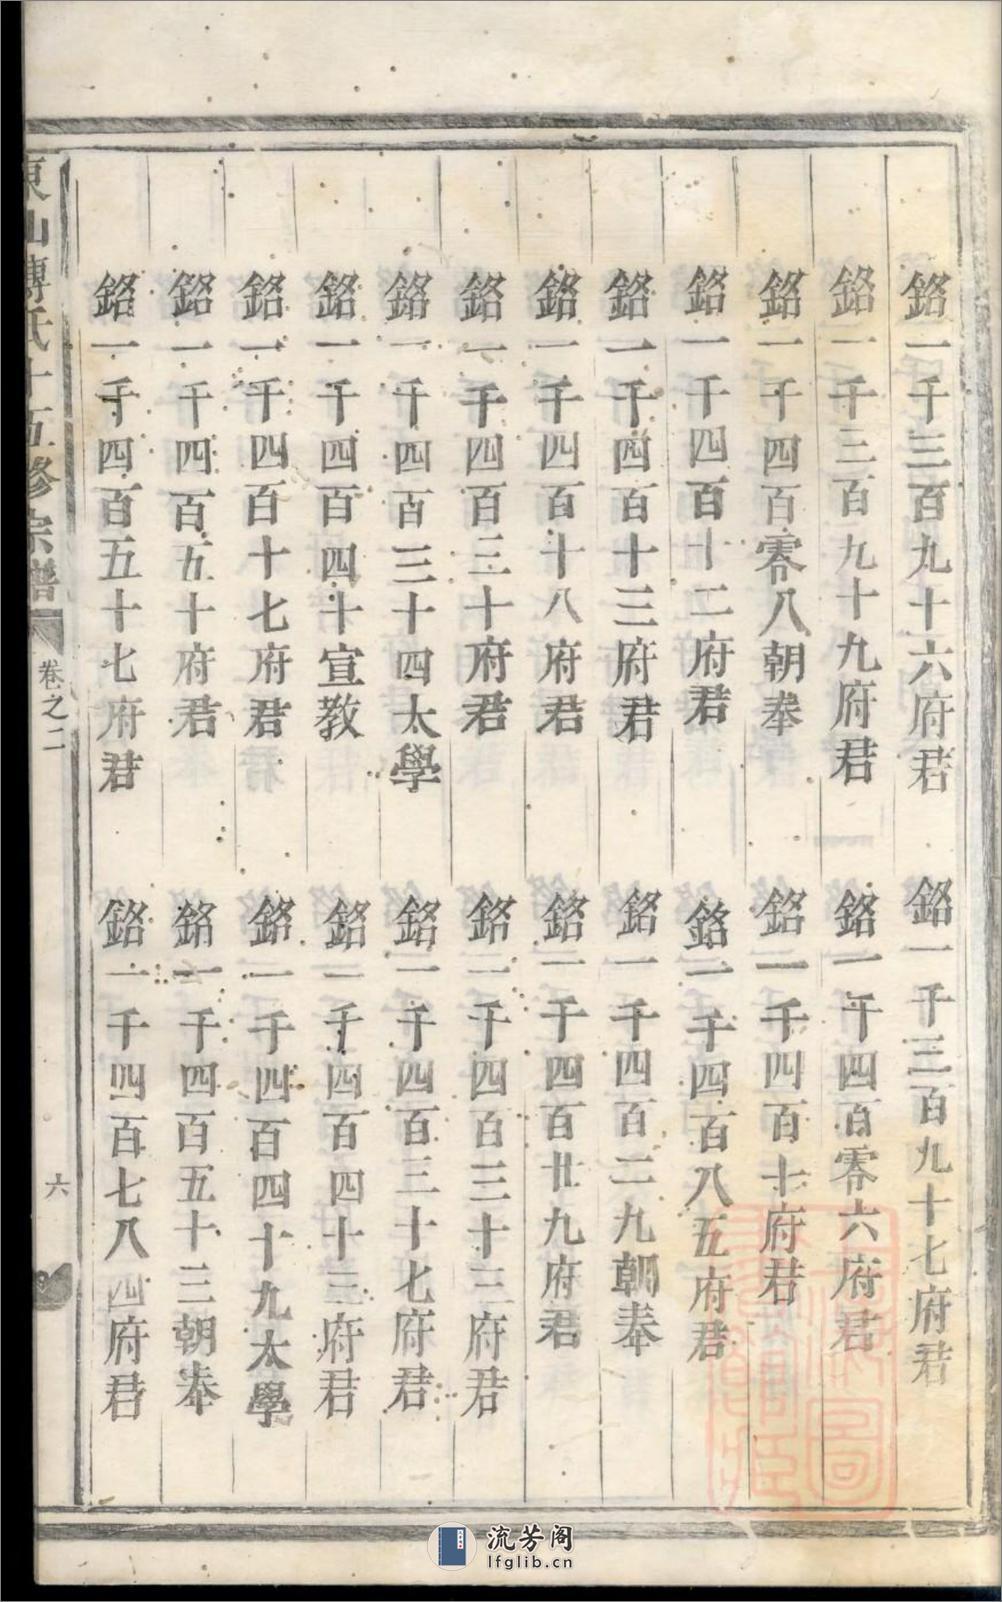 銘一千三百九十六府君
銘一千三百九十七府君
銘一千三百九十九府君
銘一千四百零六府君
銘一千四百零八朝奉
銘一千四百十府君
銘一千四百十二府君
銘一千四百八五府君
銘一千四百十三府君
銘一千四百二九朝奉
銘一千四百十八府君
銘一千四百廿九府君
銘一千四百三十府君
銘一千四百三十三府君
銘一千四百三十四太學
銘一千四百三十七府君
銘一千四百四十宣教
銘一千四百四十三府君
銘一千四百十七府君
銘一千四百四十九太學
銘一千四百五十府君
銘一千四百五十三朝奉
銘一千四百五十七府君
銘一千四百七八四府君
東山傅氏十五修宗譜
卷之二
六
流芳阁
lfglib.cn